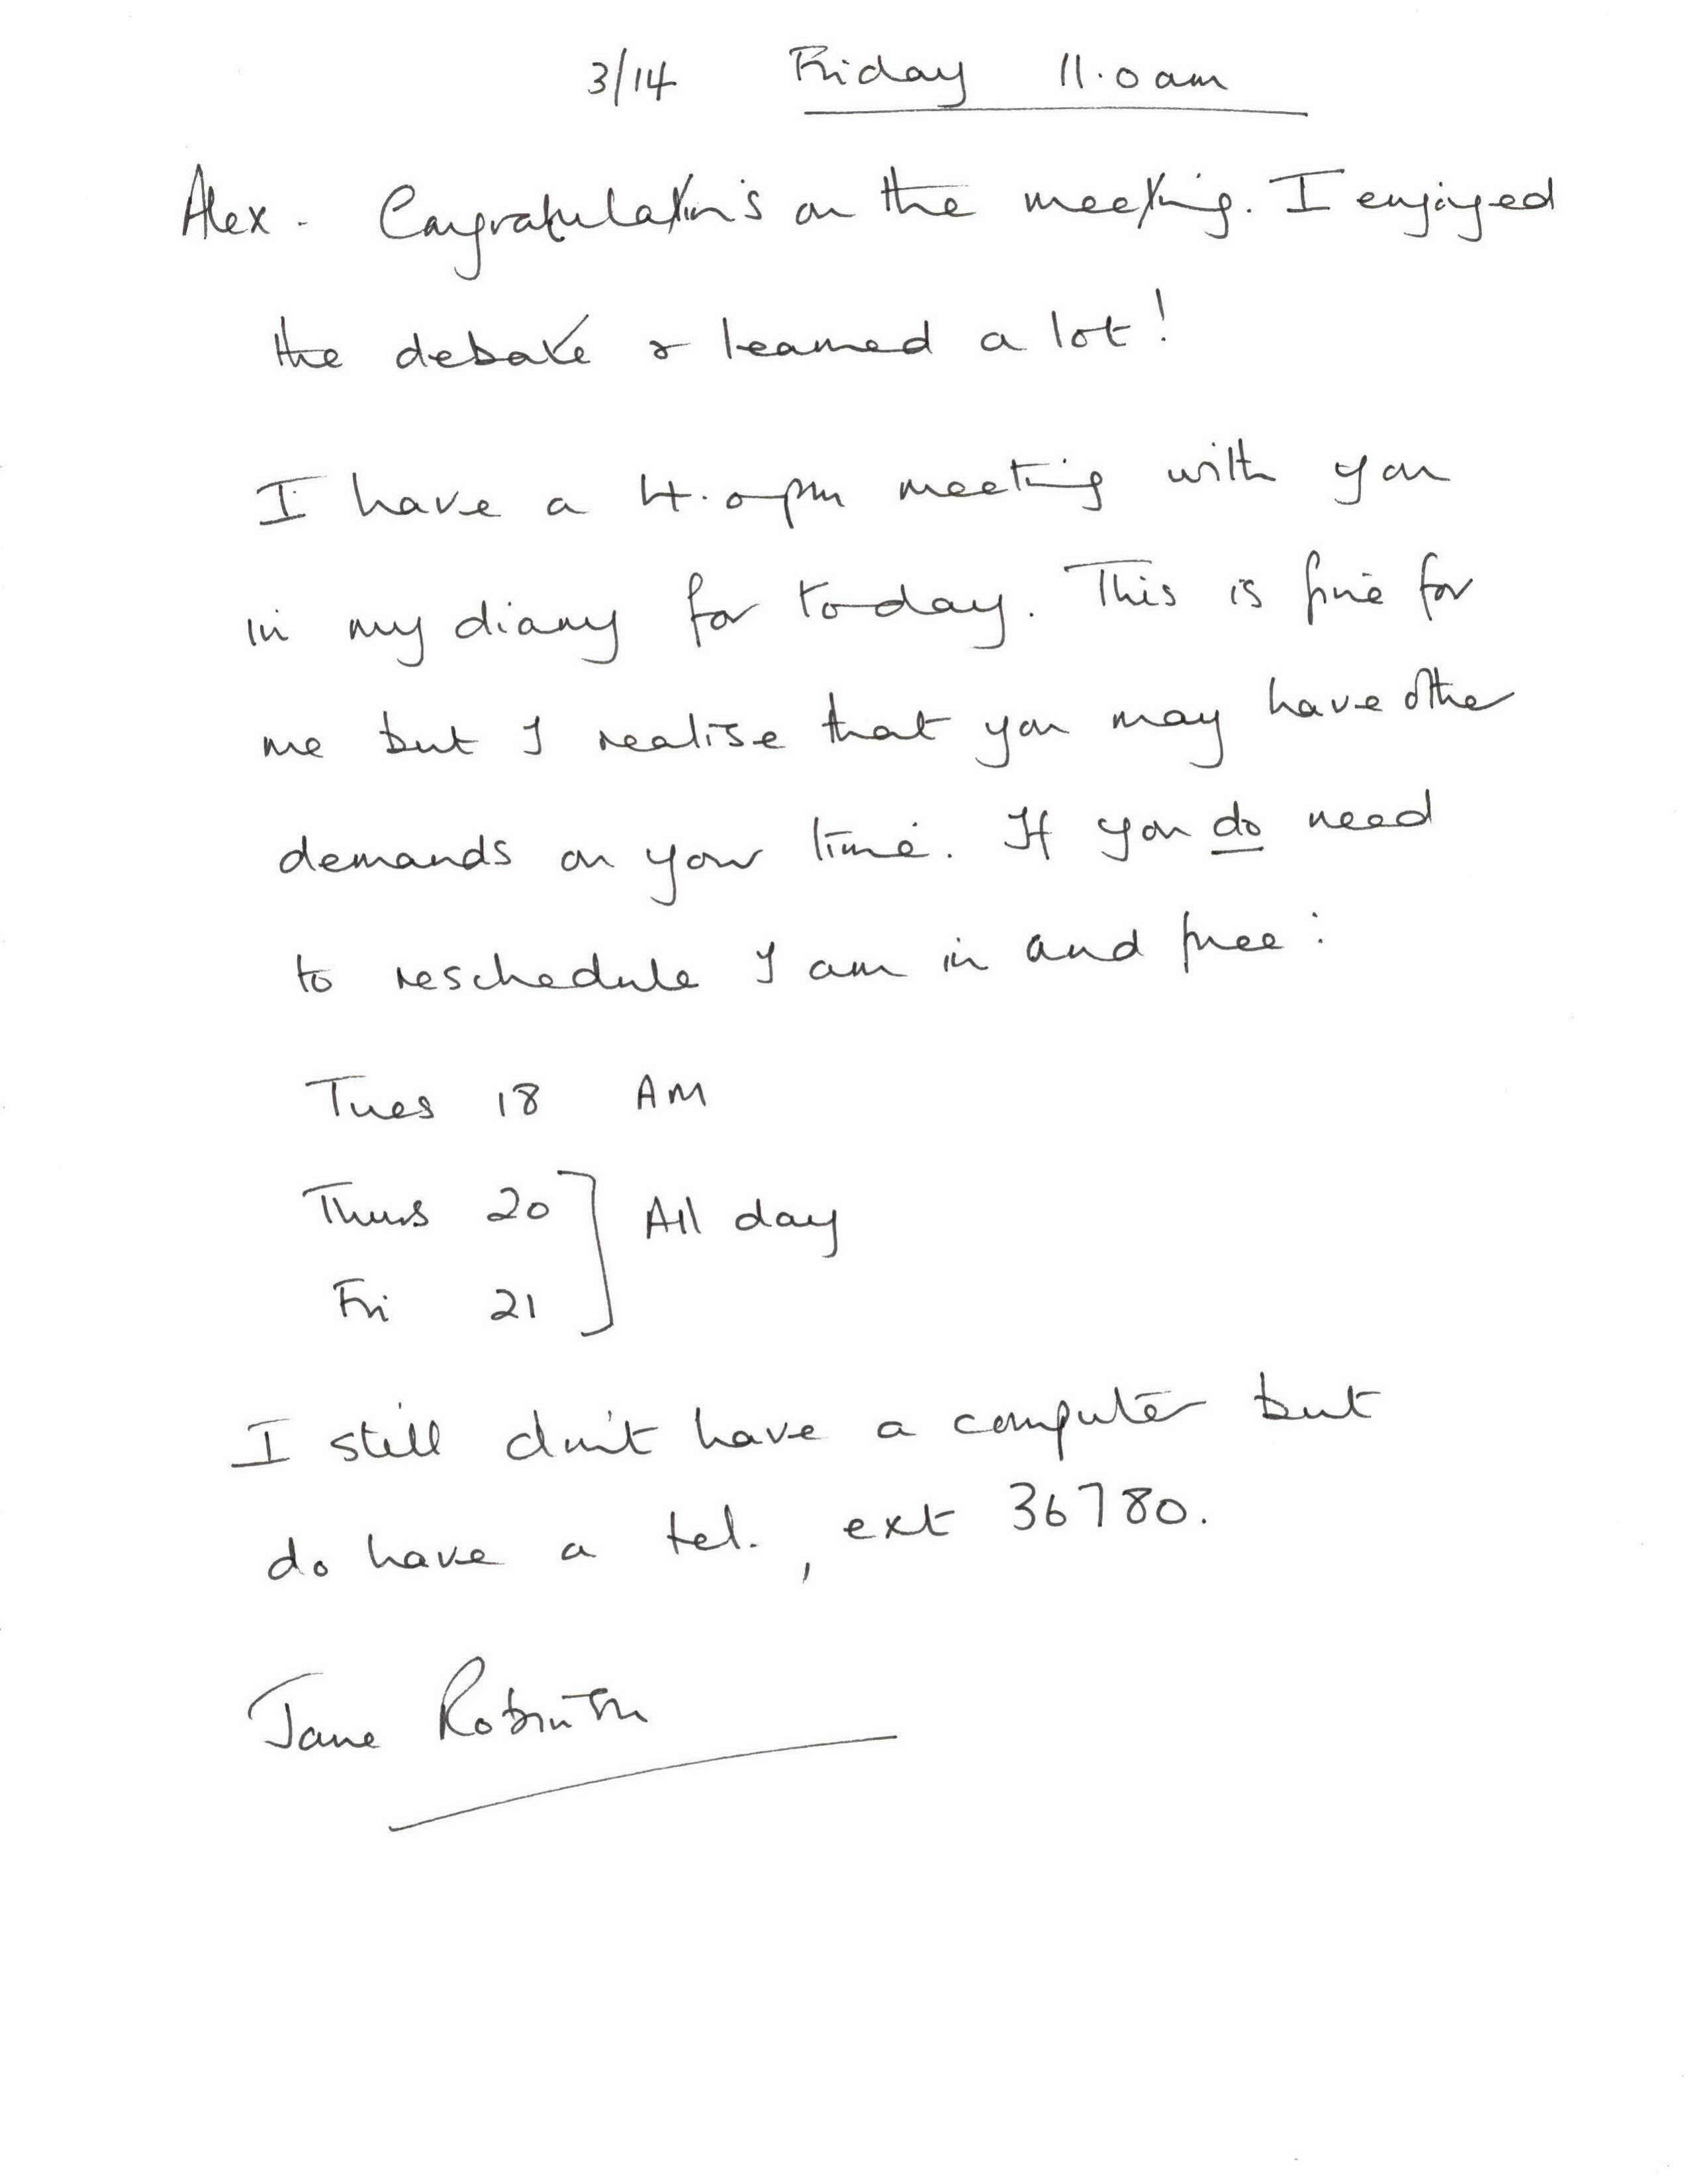 3/14 Friday 11.0 am
Alex - Congratulations on the meeting. I enjoyed
the debate & learned a lot!
I have a 4.0 pm meeting with you
in my diary for today. This is fine for
me but I realise that you may have other
demands on your time. If you do need
to reschedule I am in and free:
Tues 18 AM
Thurs 20
All day
Fri 21
I still don't have a computer but
do have a tel., ext 36780.
Jane Robinson